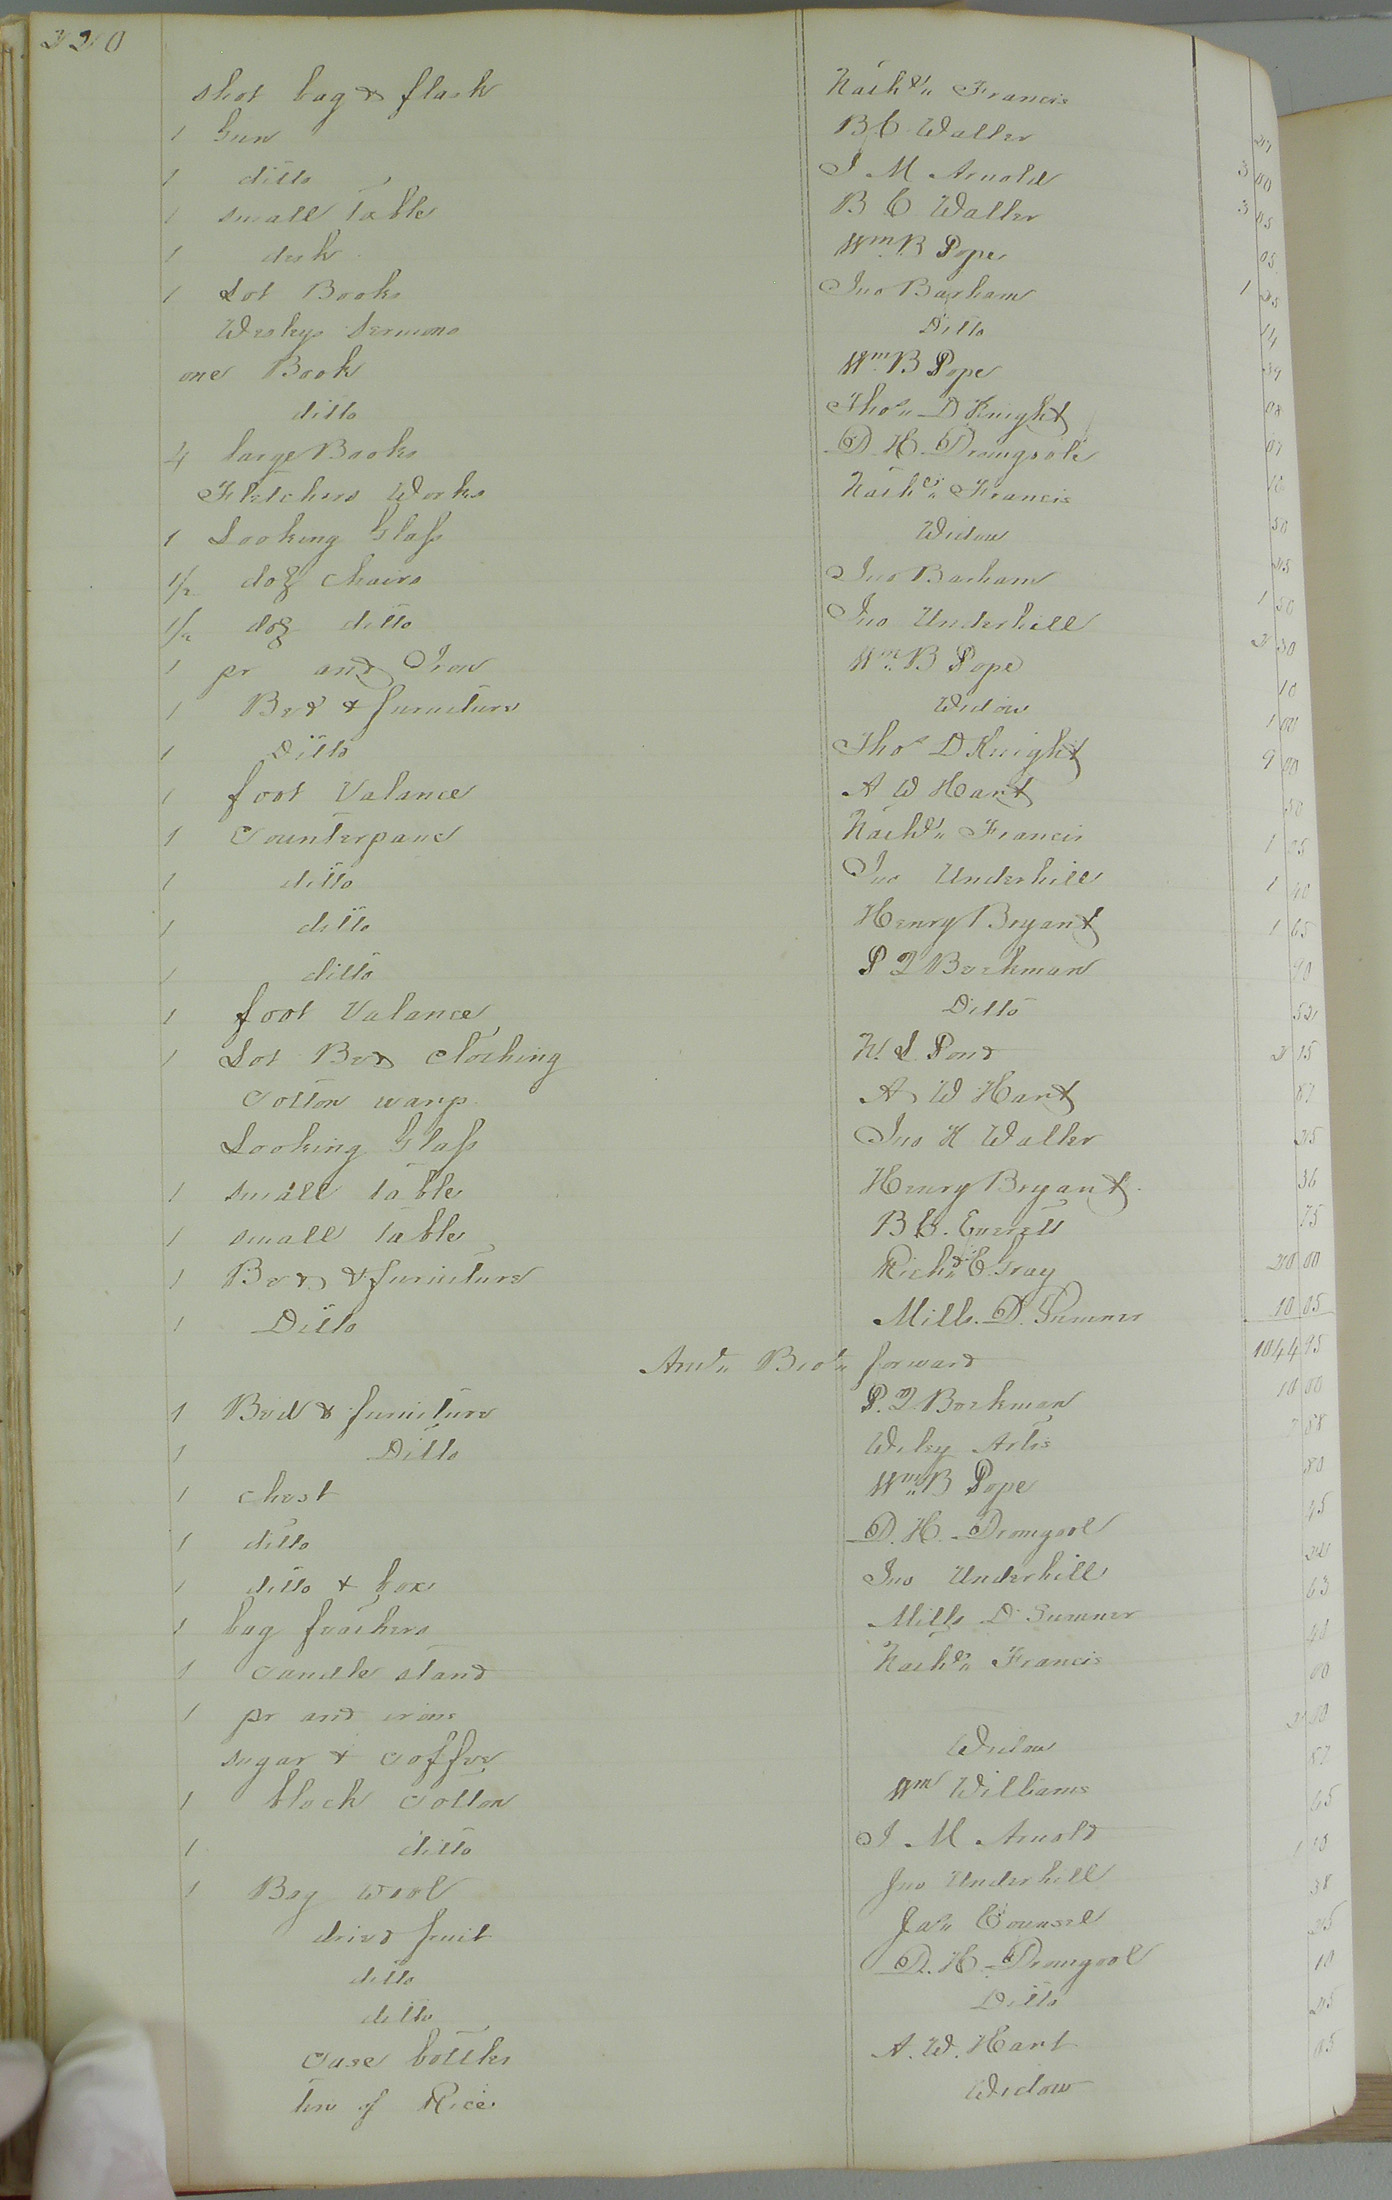 220
shot bag & flask Nathl. Francis 25
1 Gun B C Waller 3 00
1 ditto J M Arnold 3 05
1 small table B C Waller 05
1 desk Wm. B Pope 1 25
1 Lot Books Jno Barham 14
Wesleys Sermons Ditto
one Book Wm. B Pope 08
ditto Thos. D Knight 07
4 large Books D. H. Dromgoole
Fletchers Works Nathl. Francis 50
1 Looking Glass Widow 25
1/2 doz chairs Jno Barham 1 50
1/2 doz ditto Jno Underhill 2 30
1 pr and Iron Wm. B Pope 10
1 Bed & furniture Widow 1 00
1 Ditto Thos D Knight 9 00
1 foot Valance A W Hart 50
1 Counterpane Nathl. Francis 1 05
1 ditto Jno Underhill 1 40
1 ditto Henry Bryant 1 65
1 ditto P Q Beekman 90
1 foot Valance Ditto 52
1 Lot Bed Clothing W. L Pond 2 15
Cotton warp A W Hart 87
Looking Glass Jno H Waller 25
1 small table Henry Bryant. 36
1 small table B C. Everett 75
1 Bed & furniture Richd. E Gray 20 00
1 Ditto Mills. D. Sumner 10 05
Amt. Brot. forward 1044 95
1 Bed & furniture P. Q Beekman 10 00
1 Ditto Wiley Artis 88
1 chest Wm. B Pope 80
1 ditto D. H. Dromgool 45
1 ditto & box Jno Underhill
1 bag feathers Mills D Sumner
1 Candle stand Nathl. Francis
1 pr and irons
sugar & Coffee Widow
1 block Cotton Wm Williams
1 ditto J M Arnold
1 Bag wool Jno Underhill
dried fruit Jas. Counsel
ditto D. H. Dromgool
ditto Ditto
Case bottles A. W. Hart
of Rice Widow